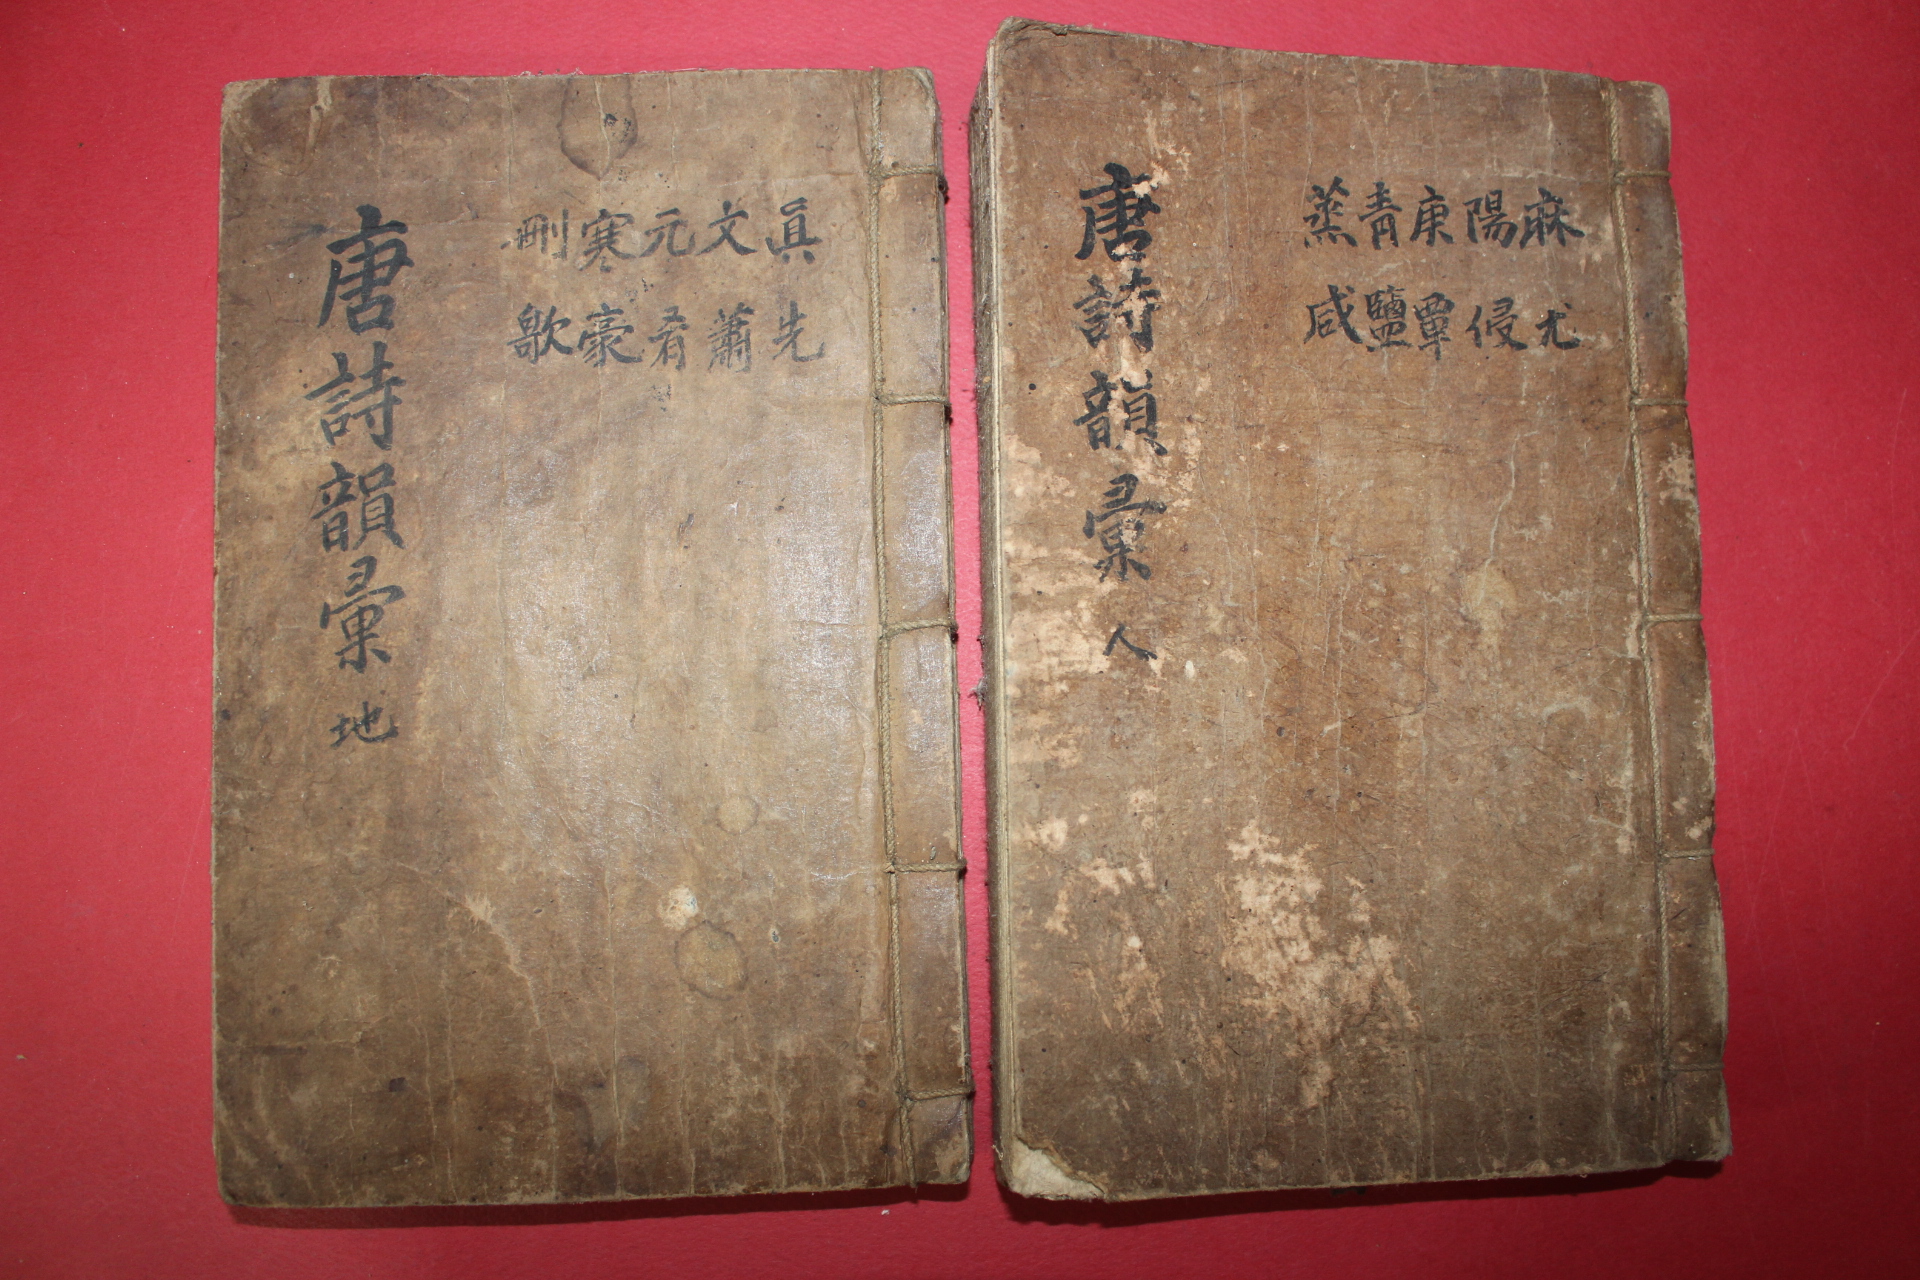 眞文元寒刪
先蕭肴豪歌
唐詩韻彙 地
麻陽庚青蒸
尤侵覃鹽咸
唐詩韻彙 人